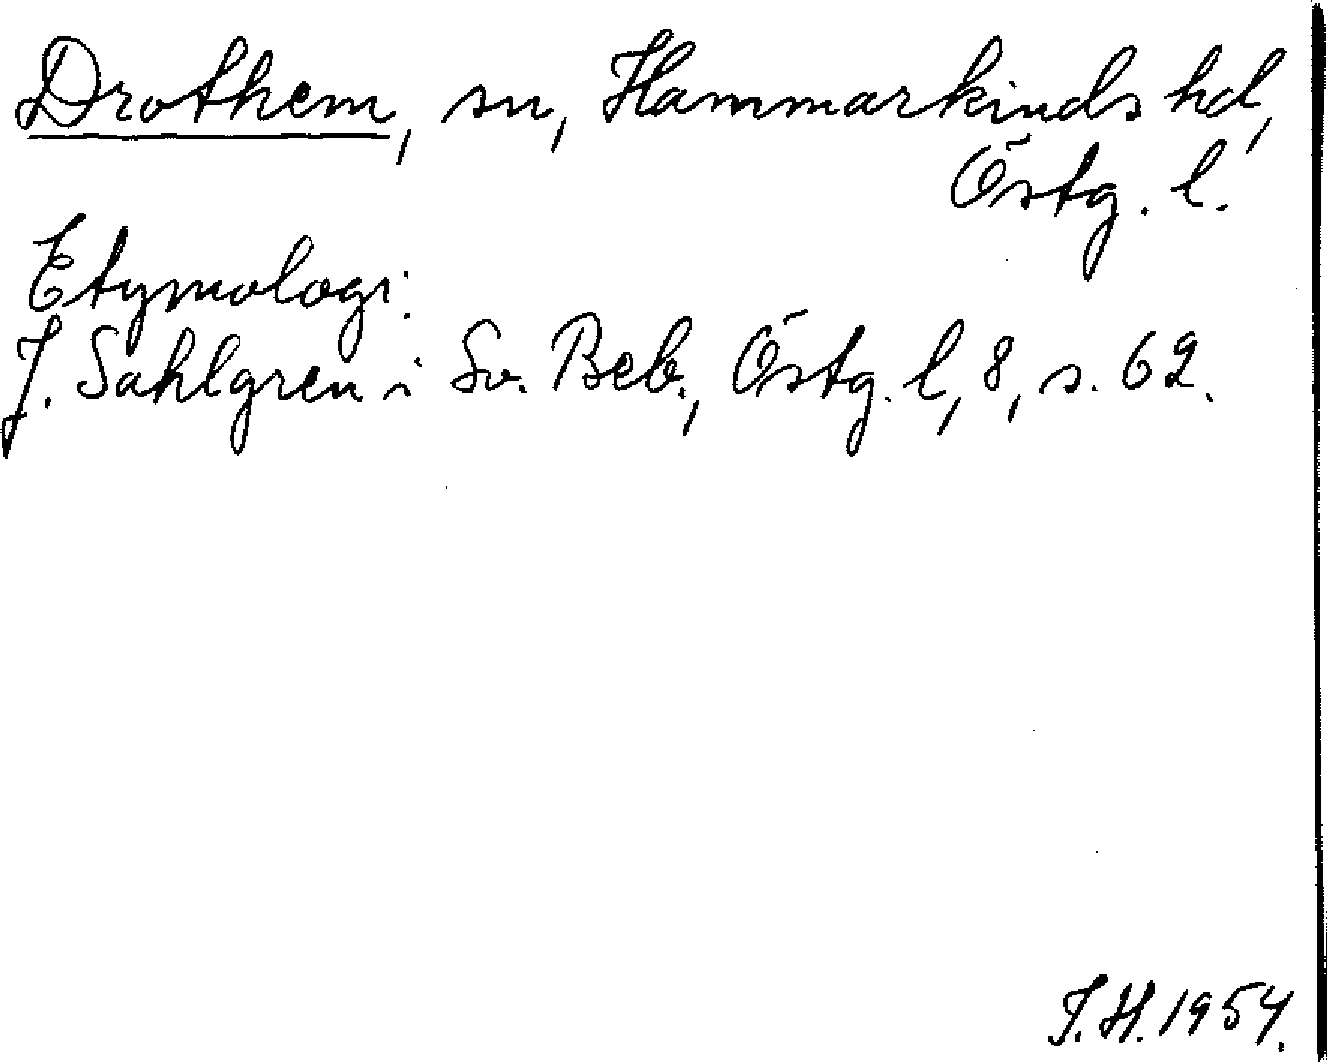 Drothem, sn, Hammarkinds hd,
Östg. l.
Etymologi:
J. Sahlgren i Sv. Beb., Östg. l, 8, s. 62.
J.H. 1954.